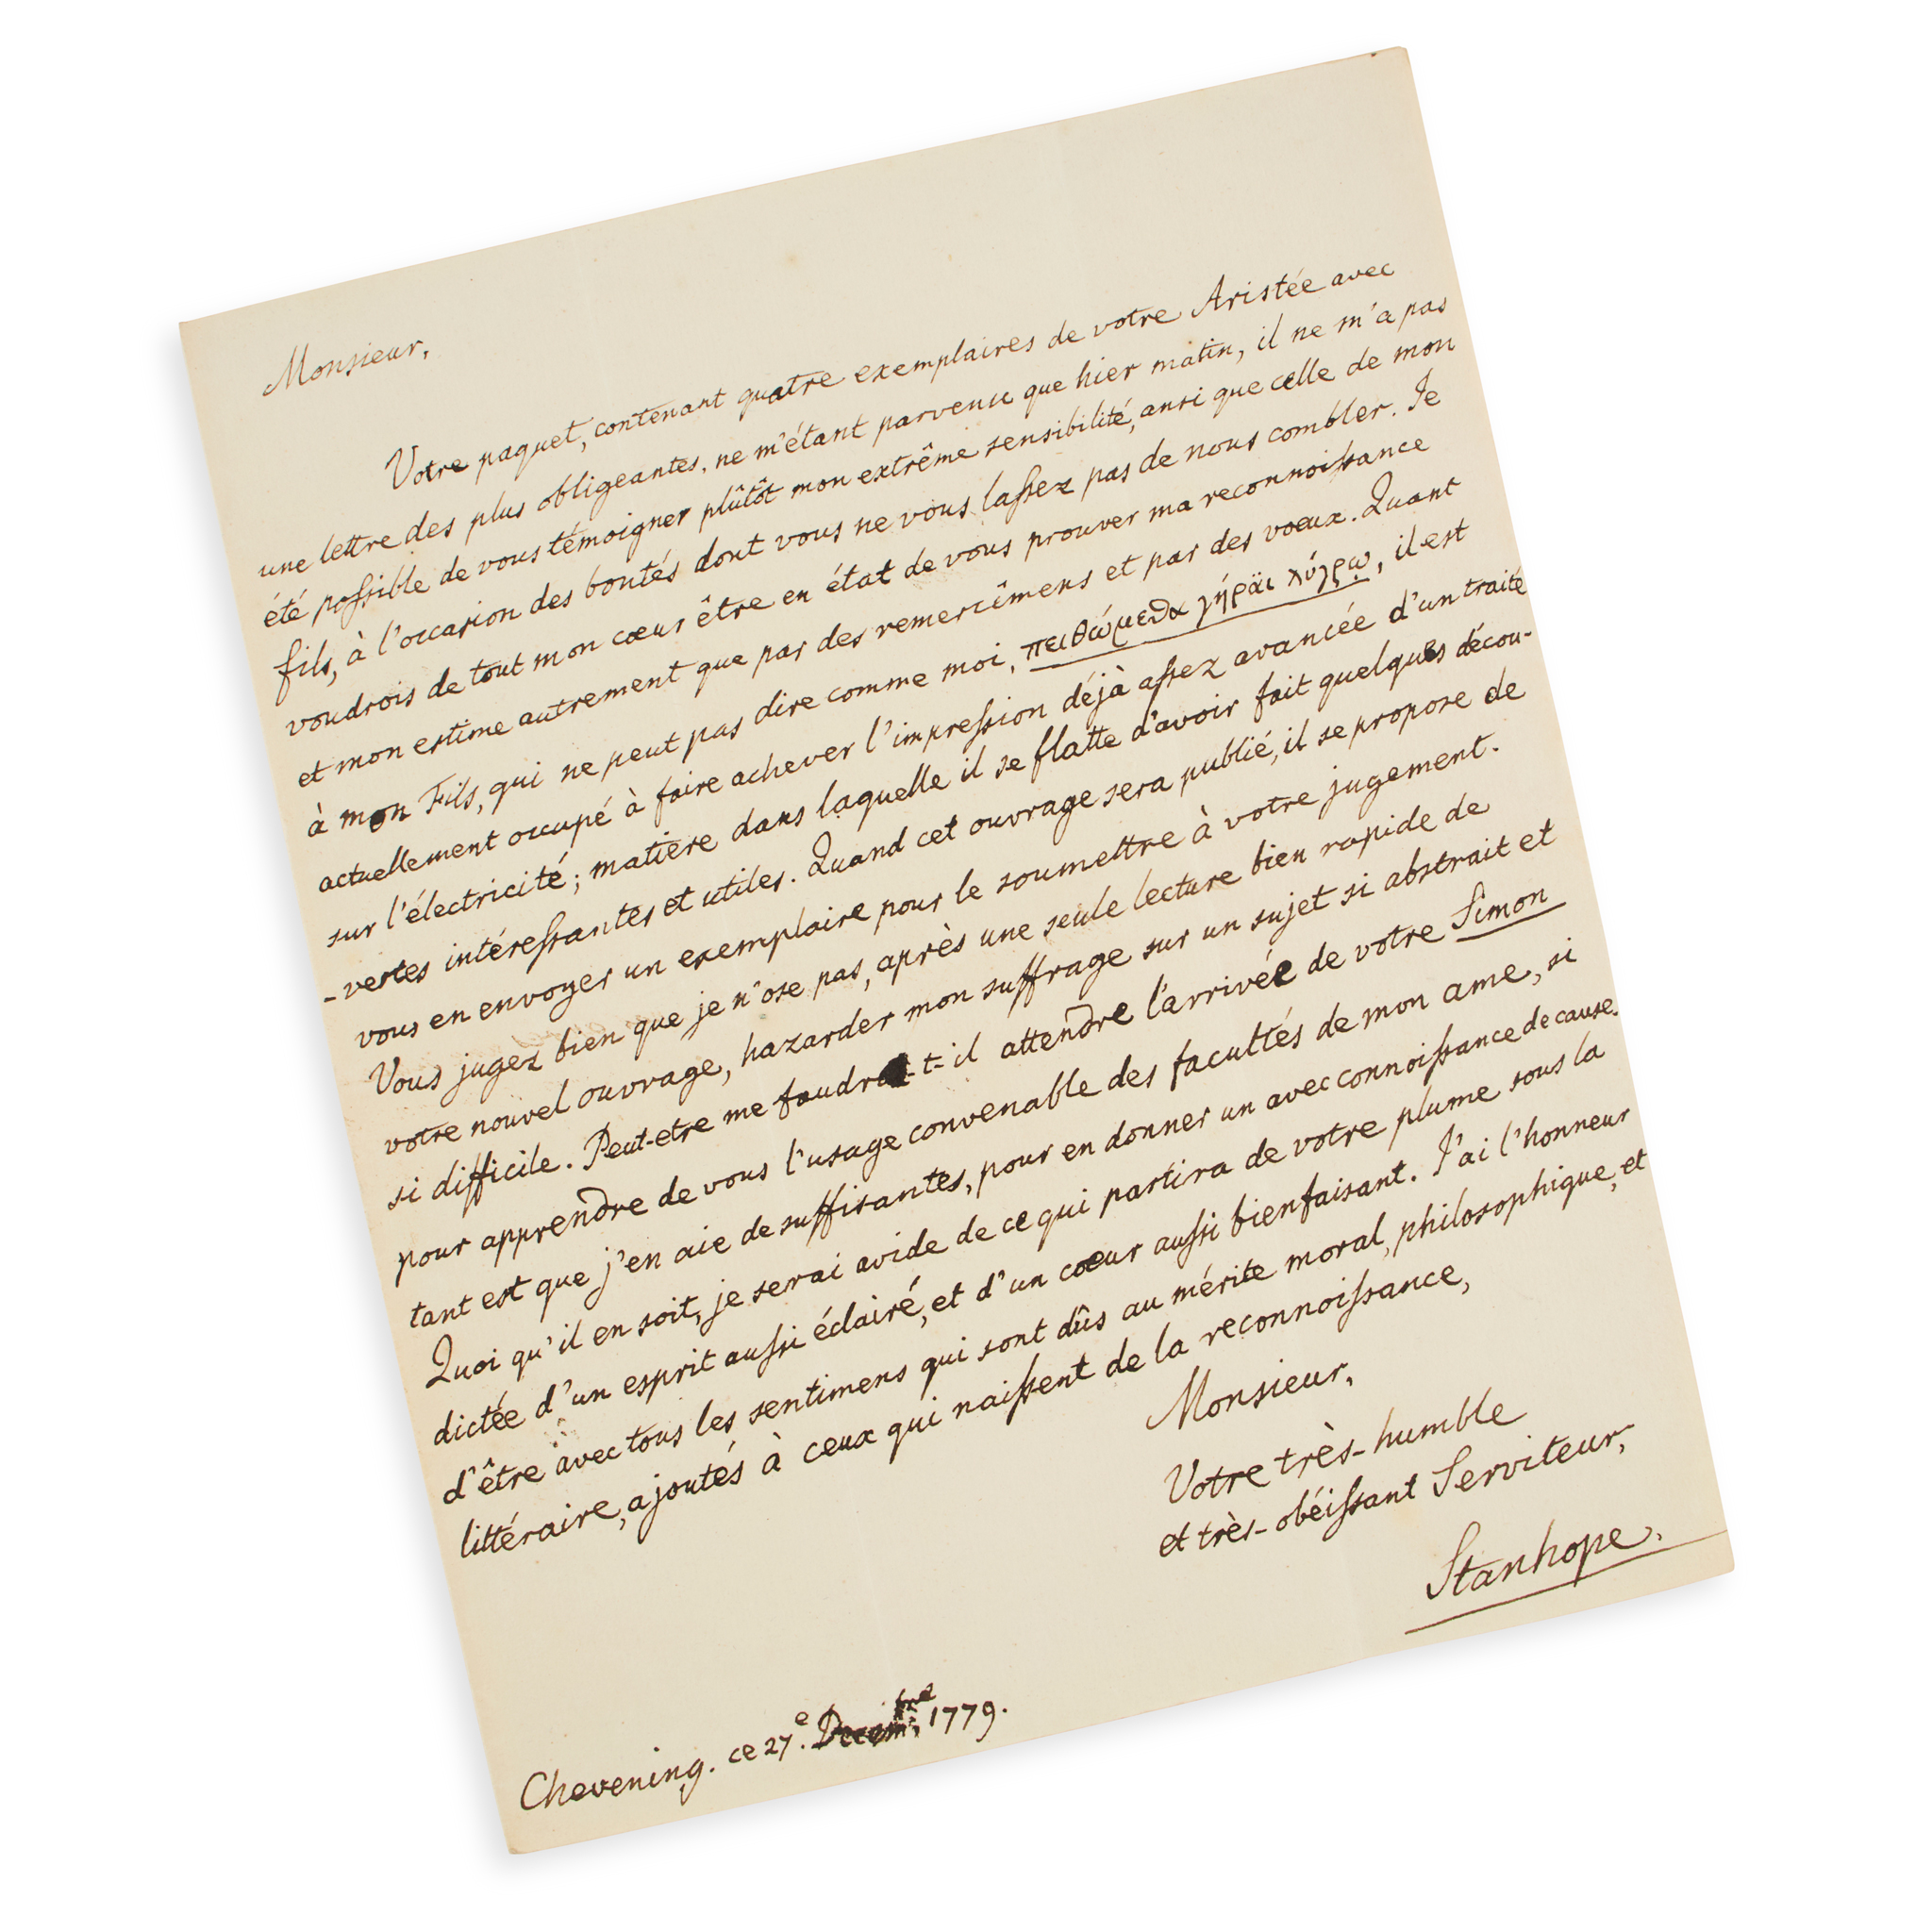 Monsieur,
Votre paquet, contenant quatre exemplaires de votre Aristée avec
une lettre des plus obligeantes, ne m'étant parvenu que hier matin, il ne m'a pas
été possible de vous témoigner plûtôt mon extrême sensibilité, ansi que celle de mon
fils, à l'occasion des bontés dont vous ne vous lassez pas de nous combler. Je
voudrois de tout mon cœur être en état de vous prouver ma reconnoissance
et mon estime autrement que par des remercîmens et par des voeux. Quant
à mon Fils, qui ne peut pas dire comme moi, πειθώμεθα γήραϊ λύγρῳ, il est
actuellement occupé à faire achever l'impression déjà assez avancée d'un traité
sur l'électricité; matière dans laquelle il se flatte d'avoir fait quelques décou-
-vertes intéressantes et utiles. Quand cet ouvrage sera publié, il se propose de
vous en envoyer un exemplaire pour le soumettre à votre jugement.
Vous jugez bien que je n'ose pas, après une seule lecture bien rapide de
votre nouvel ouvrage, hazarder mon suffrage sur un sujet si abstrait et
si difficile. Peut-etre me faudra-t-il attendre l'arrivée de votre Simon
pour apprendre de vous l'usage convenable des facultés de mon ame, si
tant est que j'en aie de suffisantes, pour en donner un avec connoissance de cause.
Quoi qu'il en soit, je serai avide de ce qui partira de votre plume sous la
dictée d'un esprit aussi éclairé, et d'un cœur aussi bienfaisant. J'ai l'honneur
d'être avec tous les sentimens qui sont dûs au mérite moral, philosophique, et
littéraire, ajoutés à ceux qui naissent de la reconnoissance,
Monsieur,
Votre très-humble
et très-obéissant Serviteur,
Stanhope.
Chevening. ce 27e. Decembre 1779.